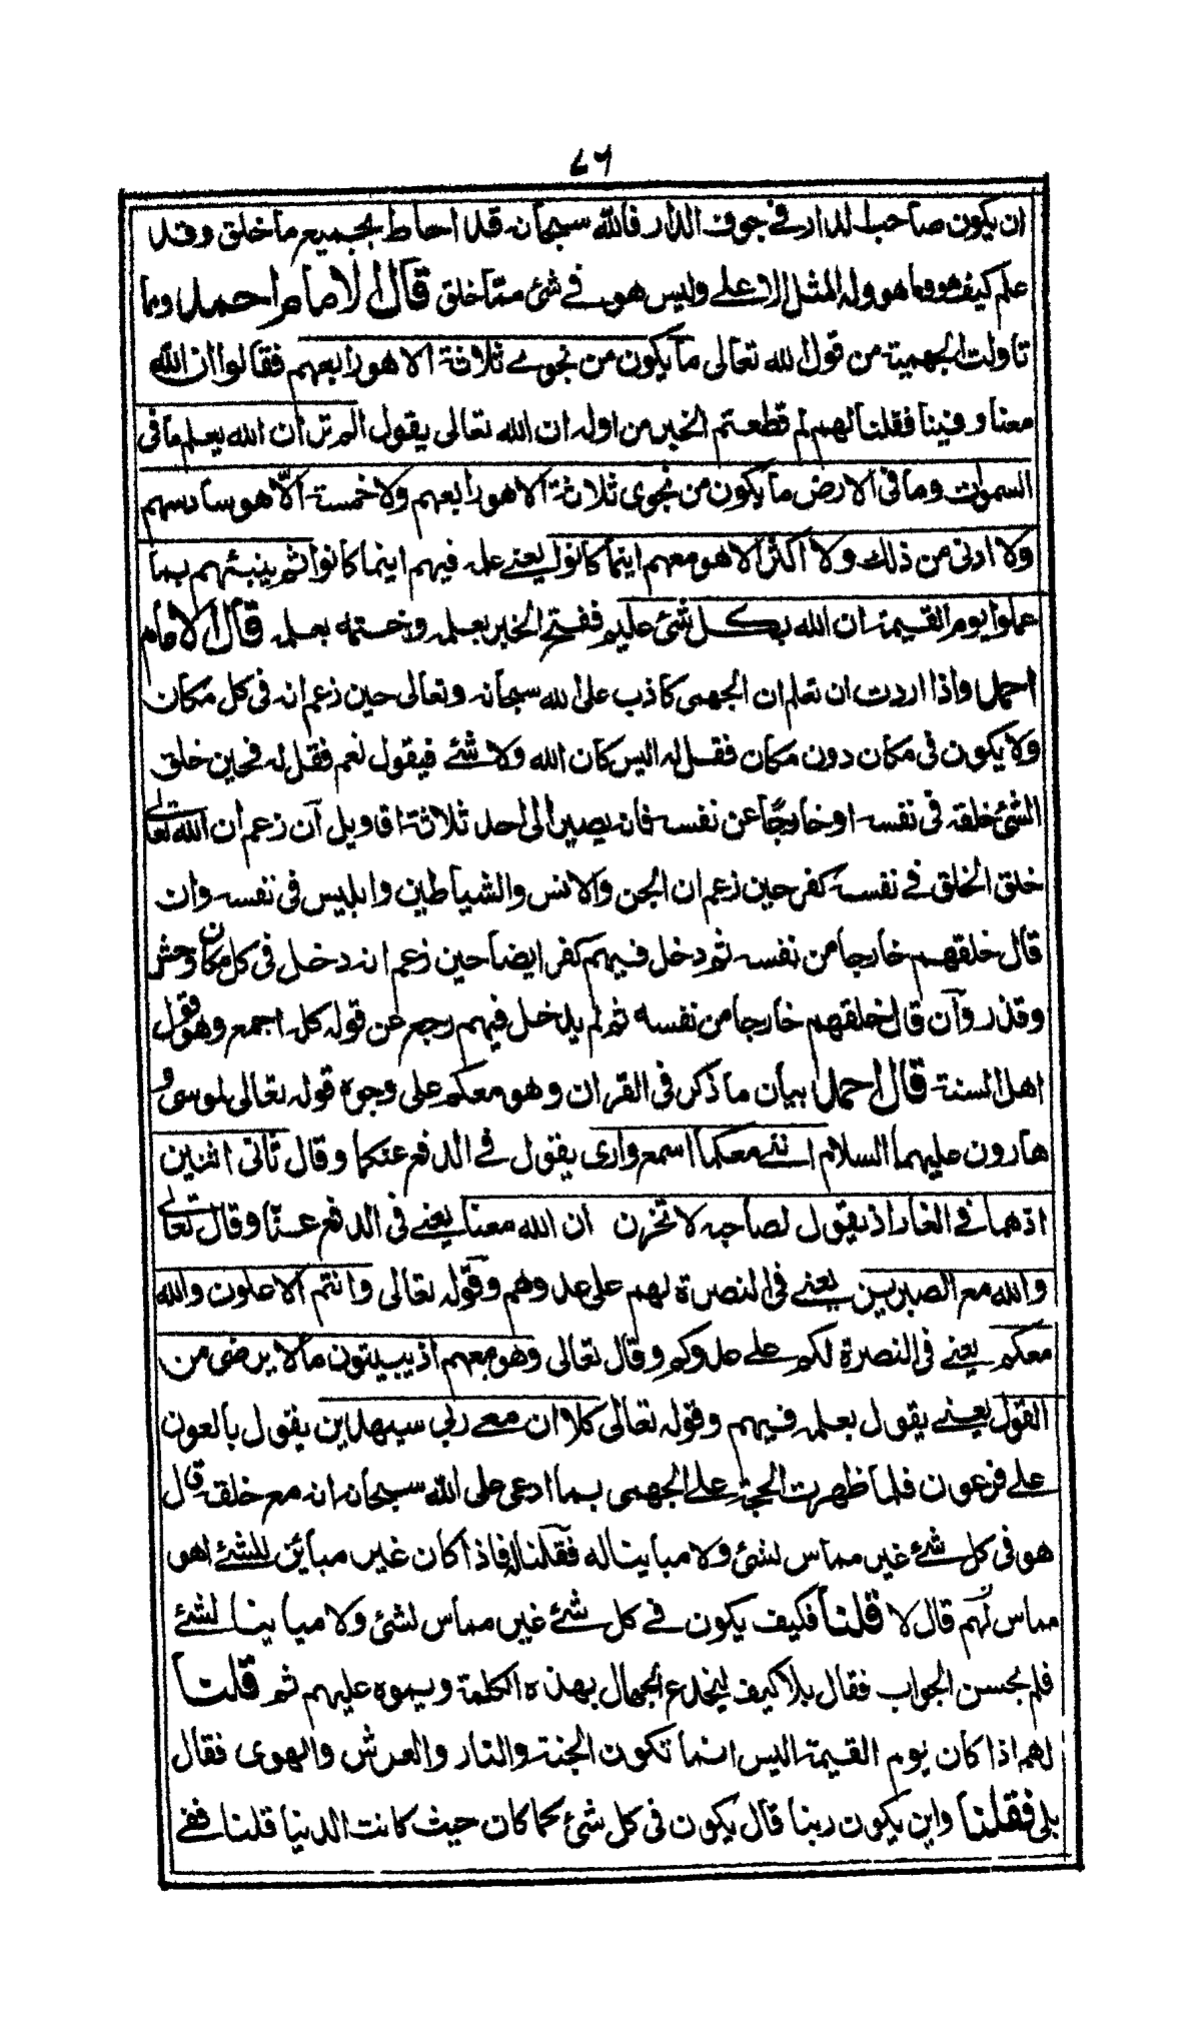 ٧٦
ان يكون صاحب الدار في جوف الدار فالله سبحانه قد احاط بجميع ما خلق وقد
علم كيف هو وما هو وله المثل الاعلى وليس هو في شئ مما خلق قال الامام احمد ومما
تاولت الجهمية من قول الله تعالى ما يكون من نجوى ثلاثة الا هو رابعهم فقالوا ان الله
معنا وفينا فقلنا لهم لم قطعتم الخبر من اوله ان الله تعالى يقول الم تر ان الله يعلم ما فى
السموات وما فى الارض ما يكون من نجوى ثلاثة الا هو رابعهم ولا خمسة الّا هو سادسهم
ولا ادنى من ذلك ولا اكثر الا هو معهم اينما كانوا يعنى علمه فيهم اينما كانوا ثم ينبئهم بما
عملوا يوم القيمة ان الله بكل شئ عليم ففتح الخبر بعلمه وختمه بعلمه قال الامام
احمد واذا اردت ان تعلم ان الجهمى كاذب على الله سبحانه وتعالى حين زعم انه فى كل مكان
ولا يكون فى مكان دون مكان فقل له اليس كان الله ولا شئ فيقول نعم فقل له فحين خلق
الشئ خلقه فى نفسه او خارجًا عن نفسه فانه يصير الى احد ثلاثة اقاويل آن زعم ان الله تعالى
خلق الخلق فى نفسه كفر حين زعم ان الجن والانس والشياطين وابليس فى نفسه وان
قال خلقهم خارجا من نفسه ثم دخل فيهم كفر ايضا حين زعم انه دخل فى كل مكان وحش
وقذر وآن قال خلقهم خارجا من نفسه ثم لم يدخل فيهم رجع عن قوله كله اجمع وهو قول
اهل السنة قال احمد بيان ما ذكر فى القران وهو معكم على وجوه قوله تعالى لموسى و
هارون عليهما السلام اننى معكما اسمع وارى يقول فى الدفع عنكما وقال ثانى اثنين
اذ هما فى الغار اذ يقول لصاحبه لا تحزن ان الله معنا يعنى فى الدفع عنّا وقال تعالى
والله مع الصبرين يعنى فى النصرة لهم على عدوهم وقوله تعالى وانتم الاعلون والله
معكم يعنى فى النصرة لكم على عدوكم وقال تعالى وهو معهم اذ يبيتون ما لا يرضى من
القول يعنى يقول بعلمه فيهم وقوله تعالى كلا ان معى ربى سيهدين يقول بالعون
على فرعون فلما ظهرت الحجة على الجهمى بما ادعى على الله سبحانه انه مع خلقه قال
هو فى كل شئ غير مماس لشئ ولا مباينا له فقلنا له فاذا كان غير مبائن للشئ اهو
مماس لهم قال لا قلنا فكيف يكون فى كل شئ غير مماس لشئ ولا مباينا لشئ
فلم يحسن الجواب فقال بلا كيف ليخدع الجهال بهذه الكلمة ويموه عليهم ثم قلنا
لهم اذا كان يوم القيمة اليس انما تكون الجنة والنار والعرش والهوى فقال
بلى فقلنا واين يكون ربنا قال يكون فى كل شئ كما كان حيث كانت الدنيا قلنا ففى